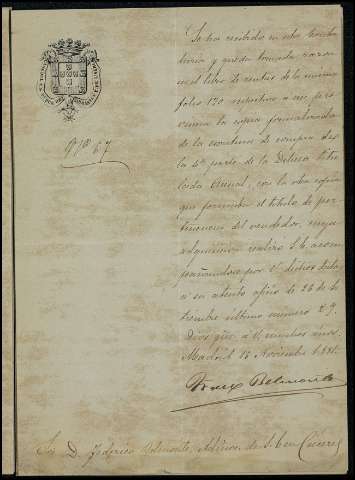 Nº 67
Se ha recibido en esta Conta
duria y queda tomada razon
en el libro de rentas de la misma
folio 170 respectivo a esa pro
vincia la copia formalizada
de la escritura de compra de
la 4ª parte de la Dehesa titu
lada Arenal, con la otra copia
que formaba el titulo de per
tenencia del vendedor, cuya
adquisicion realizó S.E. acom
pañandose por V. dichos titulos
a su atento oficio de 26 de
tiembre ultimo numero 29.
Dios gue. a V. muchos años.
Madrid 15 Noviembre 1881.
Belmonte
Sr. D. Federico Belmonte, Admor. de S.E. en Cáceres